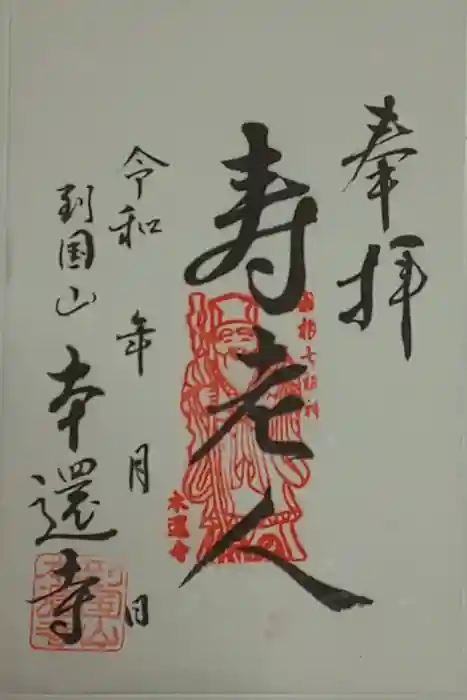 奉拝
寿老人
七福神
本還寺
令和 年 月 日
到国山 本還寺